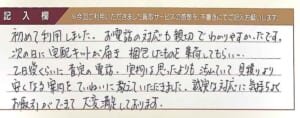 記入欄 ※今回ご利用いただきました買取サービスの感想を、下書欄にてご記入お願いします。
初めて利用しました。お電話の対応も親切でわかりやすかったです。
次の日に宅配キットが届き 梱包したものを集荷してもらい…
2日後くらいに査定の電話。実物は思ったよりも 汚れていて 見積りより
安くなる案内を ていねいに教えていただきました。誠実な対応に気持ちよく
お取引ができて 大変満足しております。